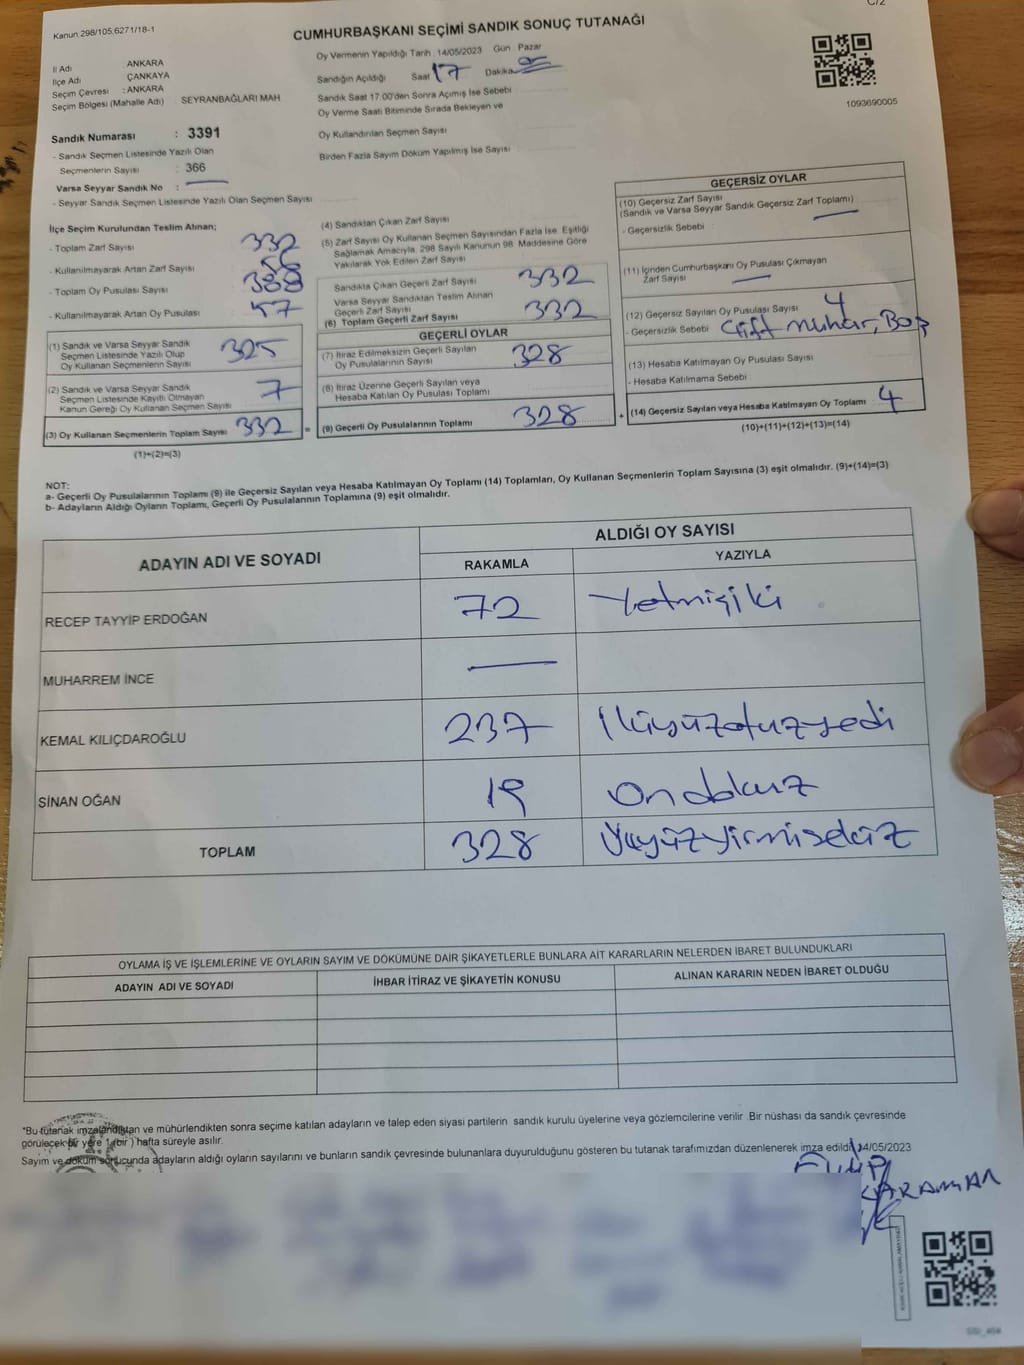 C/2
Kanun 298/105,6271/18-1
CUMHURBAŞKANI SEÇİMİ SANDIK SONUÇ TUTANAĞI
İl Adı : ANKARA
İlçe Adı : ÇANKAYA
Seçim Çevresi : ANKARA
Seçim Bölgesi (Mahalle Adı) SEYRANBAĞLARI MAH
Sandık Numarası : 3391
- Sandık Seçmen Listesinde Yazılı Olan
Seçmenlerin Sayısı : 366
Varsa Seyyar Sandık No : —
- Seyyar Sandık Seçmen Listesinde Yazılı Olan Seçmen Sayısı
Oy Vermenin Yapıldığı Tarih : 14/05/2023 Gün : Pazar
Sandığın Açıldığı Saat 17 Dakika
Sandık Saat 17:00'den Sonra Açımış İse Sebebi
Oy Verme Saati Bitiminde Sırada Bekleyen ve
Oy Kullandırılan Seçmen Sayısı
Birden Fazla Sayım Döküm Yapılmış İse Sayısı :
1093690005
İlçe Seçim Kurulundan Teslim Alınan;
- Toplam Zarf Sayısı 332
- Kullanılmayarak Artan Zarf Sayısı
- Toplam Oy Pusulası Sayısı
- Kullanılmayarak Artan Oy Pusulası 57
(1) Sandık ve Varsa Seyyar Sandık
Seçmen Listesinde Yazılı Olup
Oy Kullanan Seçmenlerin Sayısı 325
(2) Sandık ve Varsa Seyyar Sandık
Seçmen Listesinde Kayıtlı Olmayan
Kanun Gereği Oy Kullanan Seçmen Sayısı 7
(3) Oy Kullanan Seçmenlerin Toplam Sayısı 332
(1)+(2)=(3)
(4) Sandıktan Çıkan Zarf Sayısı
(5) Zarf Sayısı Oy Kullanan Seçmen Sayısından Fazla İse, Eşitliği
Sağlamak Amacıyla, 298 Sayılı Kanunun 98. Maddesine Göre
Yakılarak Yok Edilen Zarf Sayısı
Sandıkta Çıkan Geçerli Zarf Sayısı 332
Varsa Seyyar Sandıktan Teslim Alınan
Geçerli Zarf Sayısı
(6) Toplam Geçerli Zarf Sayısı 332
GEÇERLİ OYLAR
(7) İtiraz Edilmeksizin Geçerli Sayılan
Oy Pusulalarının Sayısı 328
(8) İtiraz Üzerine Geçerli Sayılan veya
Hesaba Katılan Oy Pusulası Toplamı
= (9) Geçerli Oy Pusulalarının Toplamı 328
GEÇERSİZ OYLAR
(10) Geçersiz Zarf Sayısı
(Sandık ve Varsa Seyyar Sandık Geçersiz Zarf Toplamı) —
- Geçersizlik Sebebi :
(11) İçinden Cumhurbaşkanı Oy Pusulası Çıkmayan
Zarf Sayısı —
(12) Geçersiz Sayılan Oy Pusulası Sayısı 4
- Geçersizlik Sebebi Çift Mühür, Boş
(13) Hesaba Katılmayan Oy Pusulası Sayısı
- Hesaba Katılmama Sebebi
+ (14) Geçersiz Sayılan veya Hesaba Katılmayan Oy Toplamı 4
(10)+(11)+(12)+(13)=(14)
NOT:
a- Geçerli Oy Pusulalarının Toplamı (9) ile Geçersiz Sayılan veya Hesaba Katılmayan Oy Toplamı (14) Toplamları, Oy Kullanan Seçmenlerin Toplam Sayısına (3) eşit olmalıdır. (9)+(14)=(3)
b- Adayların Aldığı Oyların Toplamı, Geçerli Oy Pusulalarının Toplamına (9) eşit olmalıdır.
ADAYIN ADI VE SOYADI
ALDIĞI OY SAYISI
RAKAMLA YAZIYLA
RECEP TAYYİP ERDOĞAN 72 Yetmişiki
MUHARREM İNCE —
KEMAL KILIÇDAROĞLU 237 İkiyüzotuzyedi
SİNAN OĞAN 19 Ondokuz
TOPLAM 328 Üçyüzyirmisekiz
OYLAMA İŞ VE İŞLEMLERİNE VE OYLARIN SAYIM VE DÖKÜMÜNE DAİR ŞİKAYETLERLE BUNLARA AİT KARARLARIN NELERDEN İBARET BULUNDUKLARI
ADAYIN ADI VE SOYADI İHBAR İTİRAZ VE ŞİKAYETİN KONUSU ALINAN KARARIN NEDEN İBARET OLDUĞU
*Bu tutanak imzalandıktan ve mühürlendikten sonra seçime katılan adayların ve talep eden siyasi partilerin sandık kurulu üyelerine veya gözlemcilerine verilir. Bir nüshası da sandık çevresinde
görülecek bir yere 1 (bir) hafta süreyle asılır.
Sayım ve döküm sonucunda adayların aldığı oyların sayılarını ve bunların sandık çevresinde bulunanlara duyurulduğunu gösteren bu tutanak tarafımızdan düzenlenerek imza edildi. 14/05/2023
KARAMAN